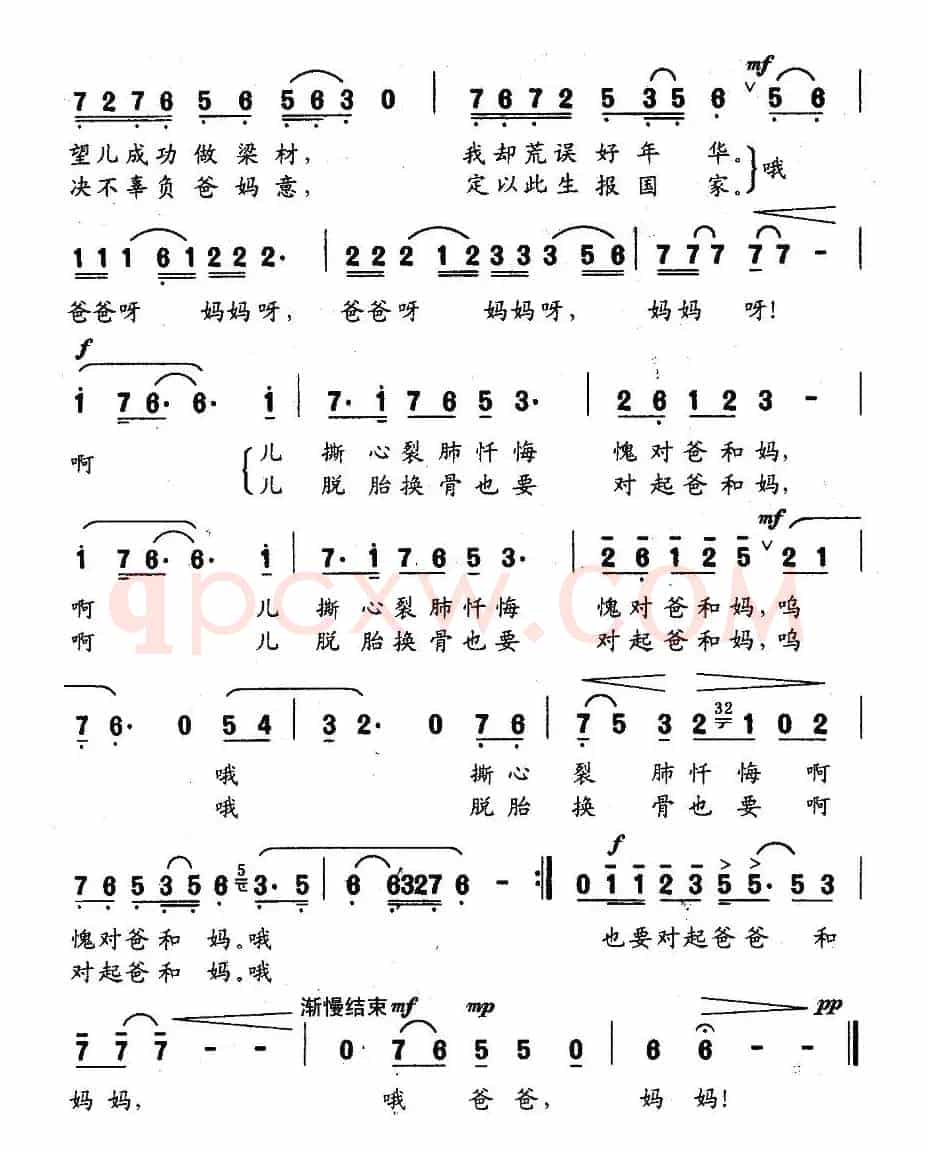 mf
7 2 7 6 5 6 5 6 3 0 | 7 6 7 2 5 3 5 6 ∨ 5 6 |
望儿成功做梁材, 我却荒误好年华。哦
决不辜负爸妈意, 定以此生报国家。
1 1 1 6 1 2 2 2 2· | 2 2 2 1 2 3 3 3 3 5 6 | 7 7 7 7 7 - |
爸爸呀 妈妈呀, 爸爸呀 妈妈呀, 妈妈呀!
f
i 7 6· 6· i | 7· i 7 6 5 3· | 2 6 1 2 3 - |
啊 儿撕心裂肺忏悔 愧对爸和妈,
儿脱胎换骨也要 对起爸和妈,
mf
i 7 6· 6· i | 7· i 7 6 5 3· | 2 6 1 2 5 ∨ 2 1
啊 儿撕心裂肺忏悔 愧对爸和妈, 呜
啊 儿脱胎换骨也要 对起爸和妈, 呜
qpcxw.COM
7 6· 0 5 4 | 3 2· 0 7 6 | 7 5 3 2 32 1 0 2 |
哦 撕心裂肺忏悔啊
哦 脱胎换骨也要啊
f
7 6 5 3 5 6 5 3· 5 | 6 6 3 2 7 6 - :‖ 0 1 1 2 3 5 5· 5 3 |
愧对爸和妈。哦 也要对起爸爸和
对起爸和妈。哦
渐慢结束 mf mp pp
7 7 7 - - | 0 7 6 5 5 0 | 6 6 - - ‖
妈妈, 哦爸爸, 妈妈!